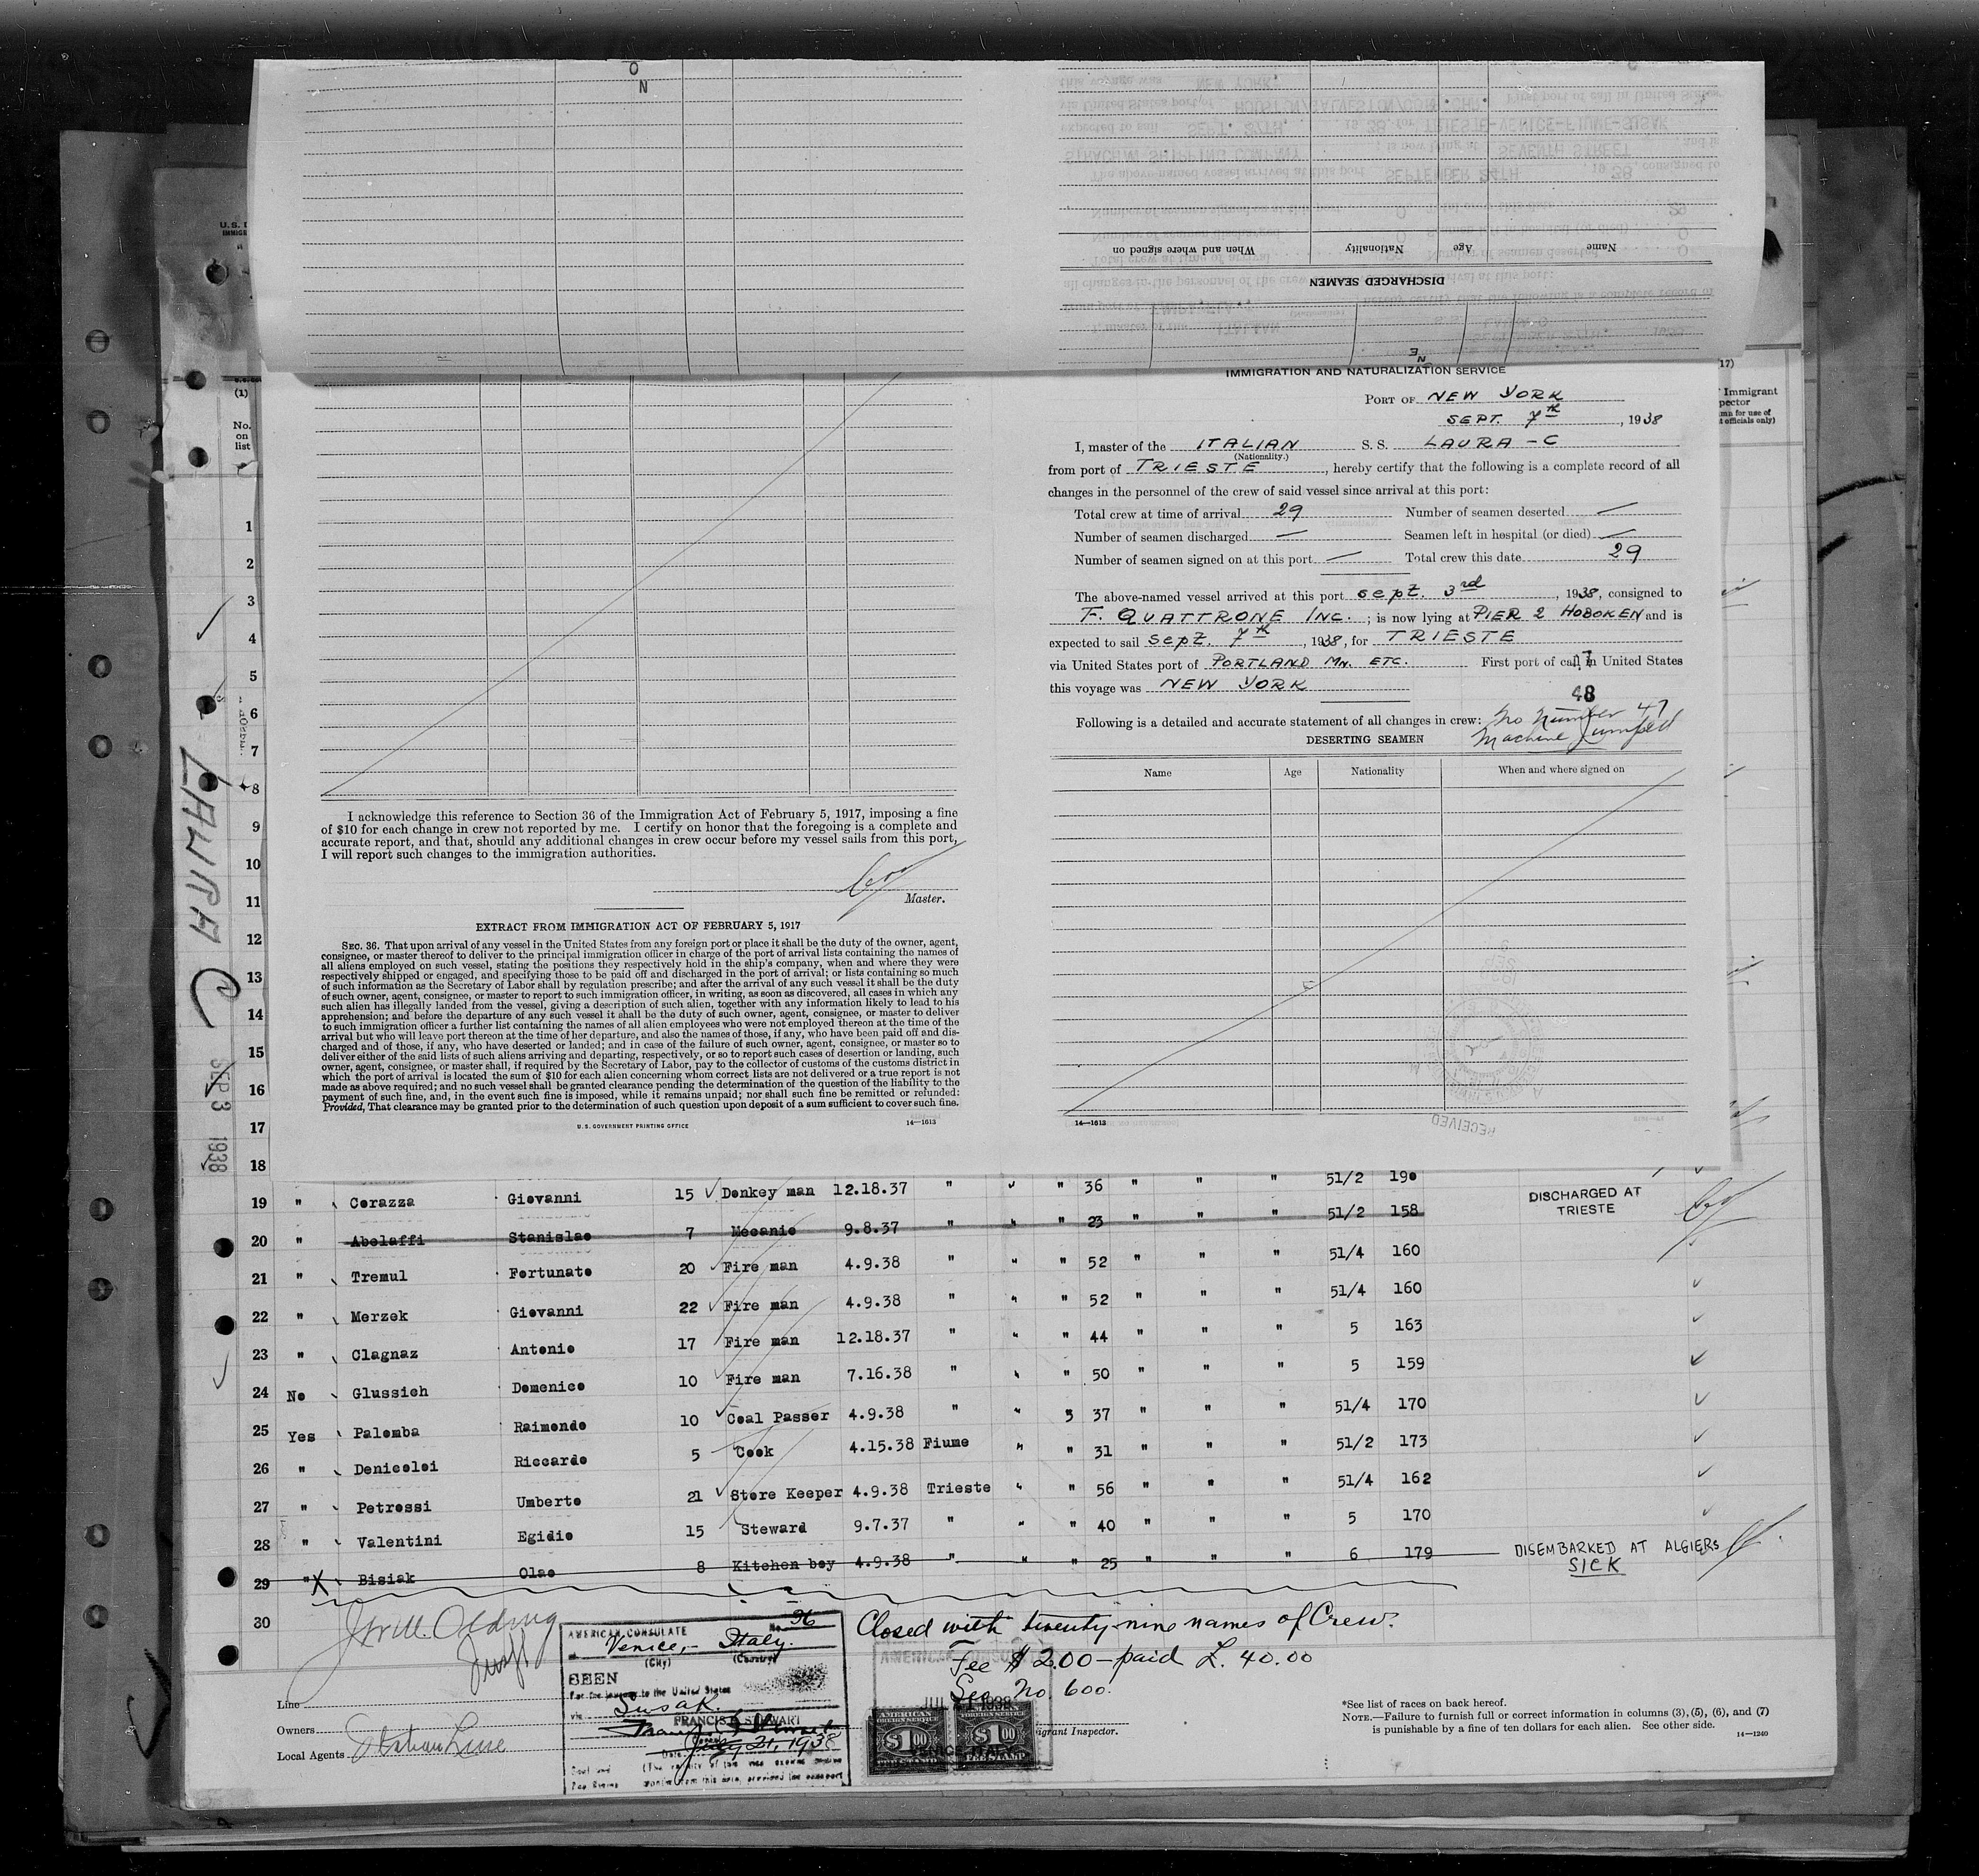 DISCHARGED SEAMEN
Name Age Nationality When and where signed on
this voyage was NEW YORK.
expected to sail SEPT. 27TH. 19 38, for TRIESTE-VENICE-FIUME-SUSAK
STRACHAN SHIPPING COMPANY ; is now lying at SEVENTH STREET and is
The above-named vessel arrived at this port SEPTEMBER 24TH , 19 38, consigned to
U.S.
(1)
No. on list
(17)
Immigrant
IMMIGRATION AND NATURALIZATION SERVICE
PORT OF NEW YORK
SEPT. 7th, 1938
I, master of the ITALIAN S. S. LAURA-C
(Nationality.)
from port of TRIESTE, hereby certify that the following is a complete record of all
changes in the personnel of the crew of said vessel since arrival at this port:
Total crew at time of arrival 29 Number of seamen deserted —
Number of seamen discharged — Seamen left in hospital (or died) —
Number of seamen signed on at this port — Total crew this date 29
The above-named vessel arrived at this port sept. 3rd, 1938, consigned to
F. QUATTRONE INC. ; is now lying at PIER 2 HOBOKEN and is
expected to sail sept. 7th, 1938, for TRIESTE
via United States port of PORTLAND MN. ETC. First port of call in United States
this voyage was NEW YORK
48
Following is a detailed and accurate statement of all changes in crew: No number 47
Machine Jumped
DESERTING SEAMEN
Name Age Nationality When and where signed on
14—1613
RECEIVED
I acknowledge this reference to Section 36 of the Immigration Act of February 5, 1917, imposing a fine
of $10 for each change in crew not reported by me. I certify on honor that the foregoing is a complete and
accurate report, and that, should any additional changes in crew occur before my vessel sails from this port,
I will report such changes to the immigration authorities.
Master.
EXTRACT FROM IMMIGRATION ACT OF FEBRUARY 5, 1917
SEC. 36. That upon arrival of any vessel in the United States from any foreign port or place it shall be the duty of the owner, agent,
consignee, or master thereof to deliver to the principal immigration officer in charge of the port of arrival lists containing the names of
all aliens employed on such vessel, stating the positions they respectively hold in the ship's company, when and where they were
respectively shipped or engaged, and specifying those to be paid off and discharged in the port of arrival; or lists containing so much
of such information as the Secretary of Labor shall by regulation prescribe; and after the arrival of any such vessel it shall be the duty
of such owner, agent, consignee, or master to report to such immigration officer, in writing, as soon as discovered, all cases in which any
such alien has illegally landed from the vessel, giving a description of such alien, together with any information likely to lead to his
apprehension; and before the departure of any such vessel it shall be the duty of such owner, agent, consignee, or master to deliver
to such immigration officer a further list containing the names of all alien employees who were not employed thereon at the time of the
arrival but who will leave port thereon at the time of her departure, and also the names of those, if any, who have been paid off and dis-
charged and of those, if any, who have deserted or landed; and in case of the failure of such owner, agent, consignee, or master so to
deliver either of the said lists of such aliens arriving and departing, respectively, or so to report such cases of desertion or landing, such
owner, agent, consignee, or master shall, if required by the Secretary of Labor, pay to the collector of customs of the customs district in
which the port of arrival is located the sum of $10 for each alien concerning whom correct lists are not delivered or a true report is not
made as above required; and no such vessel shall be granted clearance pending the determination of the question of the liability to the
payment of such fine, and, in the event such fine is imposed, while it remains unpaid; nor shall such fine be remitted or refunded:
Provided, That clearance may be granted prior to the determination of such question upon deposit of a sum sufficient to cover such fine.
U.S. GOVERNMENT PRINTING OFFICE 14—1613
LAURA C
SEP 3 1938
1
2
3
4
5
6
7
8
9
10
11
12
13
14
15
16
17
18 51/2 190
19 " Corazza Giovanni 15 Donkey man 12.18.37 " " " 36 " " " DISCHARGED AT
TRIESTE
20 " Abolaffi Stanislao 7 Mecanic 9.8.37 " " " 23 " " " 51/2 158
21 " Tremul Fortunato 20 Fire man 4.9.38 " " " 52 " " " 51/4 160
22 " Merzek Giovanni 22 Fire man 4.9.38 " " " 52 " " " 51/4 160
23 " Clagnaz Antonio 17 Fire man 12.18.37 " " " 44 " " " 5 163
24 No Glussich Domenico 10 Fire man 7.16.38 " " " 50 " " " 5 159
25 Yes Palomba Raimondo 10 Coal Passer 4.9.38 " " " 37 " " " 51/4 170
26 " Denicoloi Riccardo 5 Cook 4.15.38 Fiume " " 31 " " " 51/2 173
27 " Petrossi Umberto 21 Store Keeper 4.9.38 Trieste " " 56 " " " 51/4 162
28 " Valentini Egidio 15 Steward 9.7.37 " " " 40 " " " 5 170
29 "X Bisiak Olao 8 Kitchen boy 4.9.38 " " " 25 " " " 6 179 DISEMBARKED AT ALGIERS
SICK
30
Closed with twenty-nine names of Crew.
Fee $2.00 — paid L. 40.00
Ser. No. 600.
AMERICAN CONSULATE No. 96
at Venice, Italy.
(City) (Country)
SEEN
For the journey to the United States
via Susak.
FRANCIS B. STEWART
Date July 21, 1938
AMERICAN CONSULATE
JUL 21 1938
VENICE, ITALY
AMERICAN
FOREIGN SERVICE
$1 00
FEE STAMP
AMERICAN
FOREIGN SERVICE
$1 00
FEE STAMP
Immigrant Inspector.
Line
Owners
Local Agents
*See list of races on back hereof.
NOTE.—Failure to furnish full or correct information in columns (3), (5), (6), and (7)
is punishable by a fine of ten dollars for each alien. See other side. 14—1240